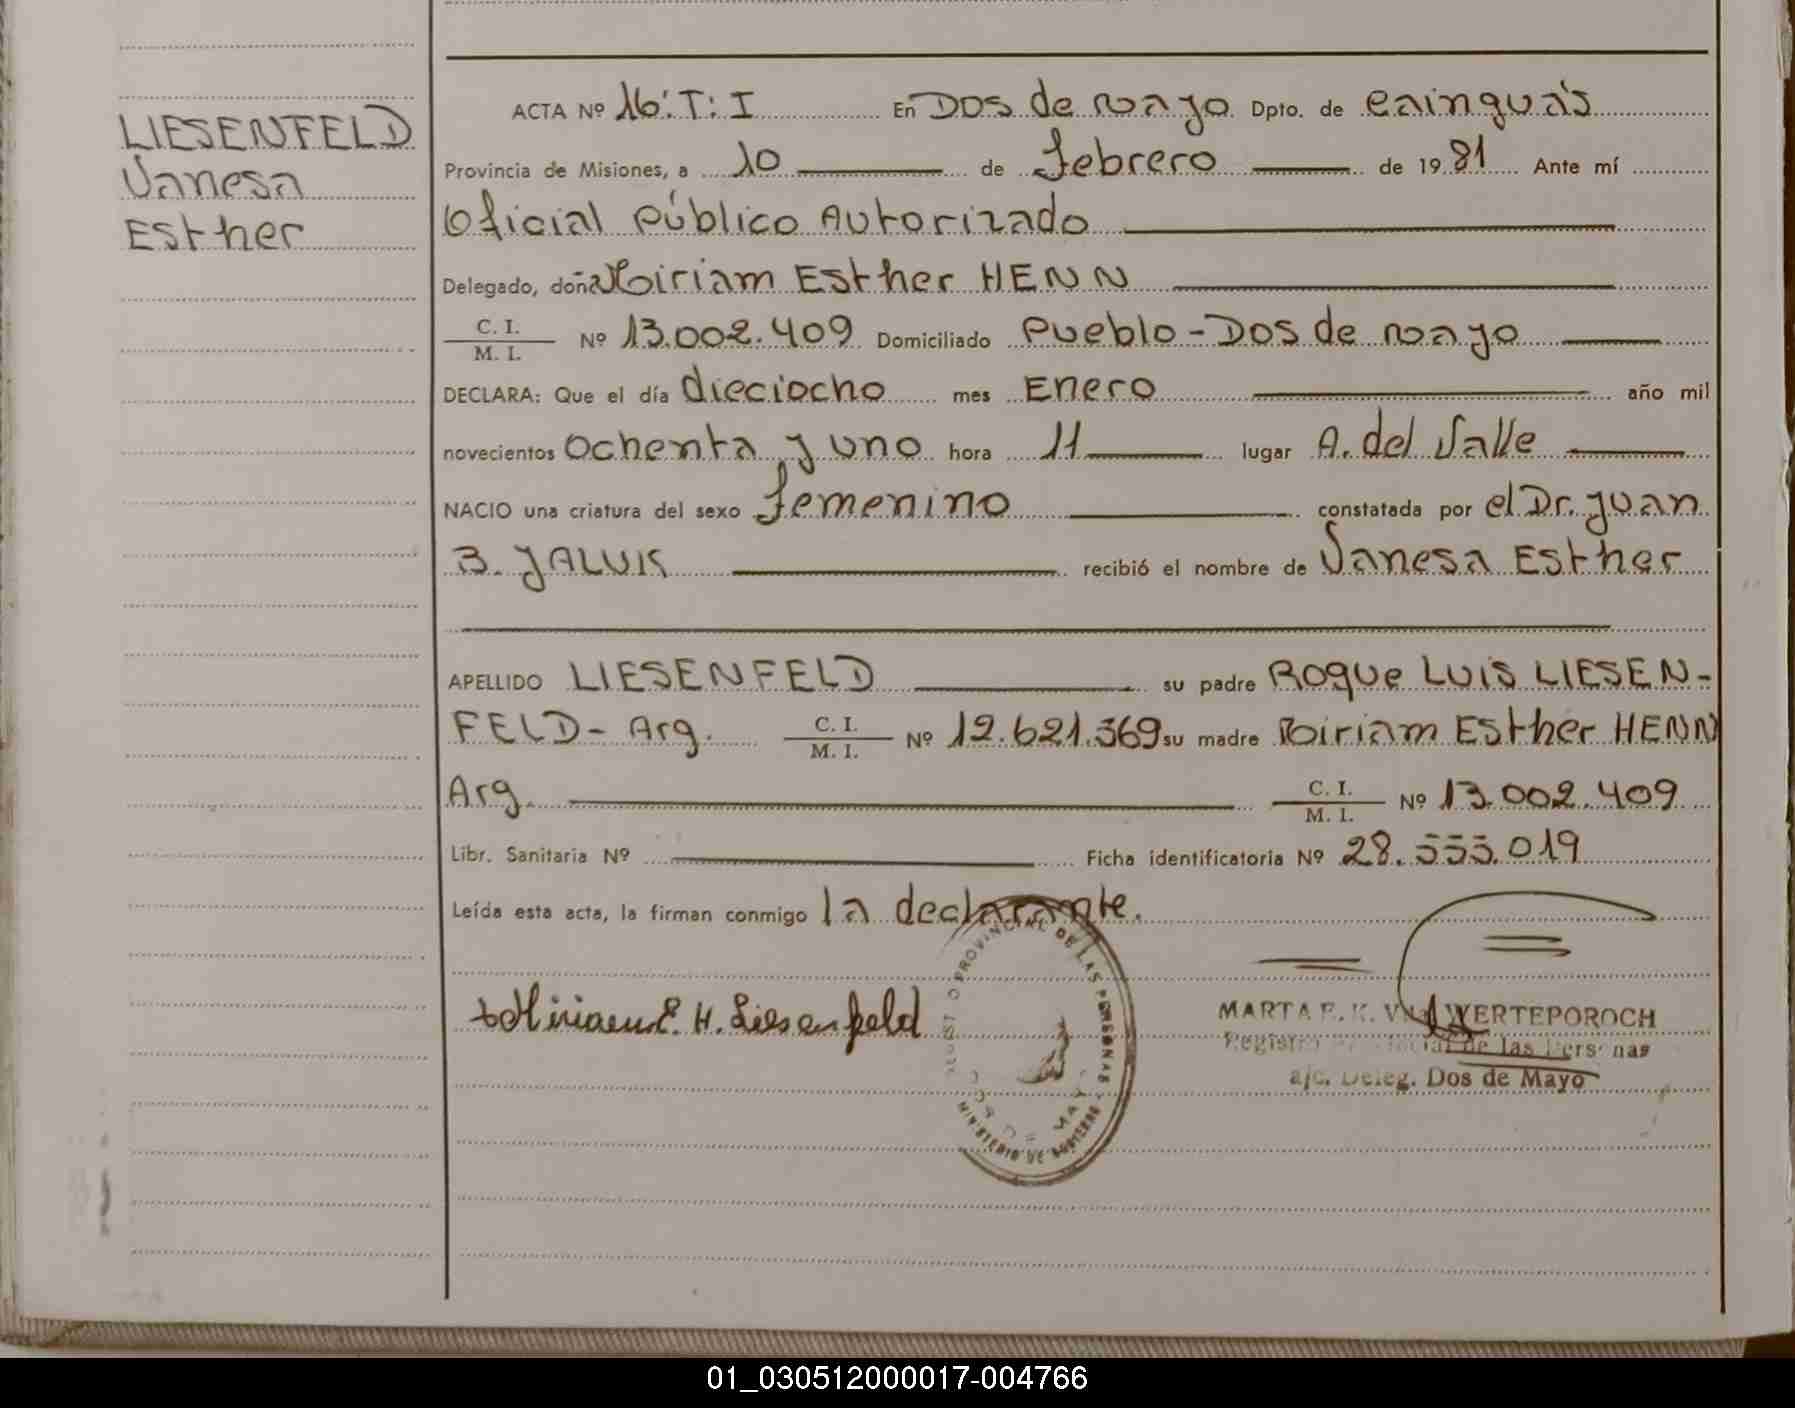 LIESENFELD
Vanesa
Esther
ACTA Nº 16:T:I En Dos de Mayo Dpto. de Cainguás
Provincia de Misiones, a 10 de Febrero de 1981 Ante mí
Oficial Público Autorizado
Delegado, doña Miriam Esther HENN
C. I.
M. I. Nº 13.002.409 Domiciliado Pueblo - Dos de Mayo
DECLARA: Que el día dieciocho mes Enero año mil
novecientos ochenta y uno hora 11 lugar A. del Valle
NACIO una criatura del sexo femenino constatada por el Dr. Juan
B. JALUK recibió el nombre de Vanesa Esther
APELLIDO LIESENFELD su padre Roque Luis LIESEN-
FELD - Arg. C. I.
M. I. Nº 12.621.369 su madre Miriam Esther HENN
Arg. C. I.
M. I. Nº 13.002.409
Libr. Sanitaria Nº Ficha identificatoria Nº 28.555.019
Leída esta acta, la firman conmigo la declarante.
Miriam E. H. Liesenfeld
PROVINCIAL DE LAS PERSONAS
MINISTERIO DE GOBIERNO
MARTA WERTEPOROCH
Registro Provincial de las Personas
a/c. Deleg. Dos de Mayo
01_030512000017-004766